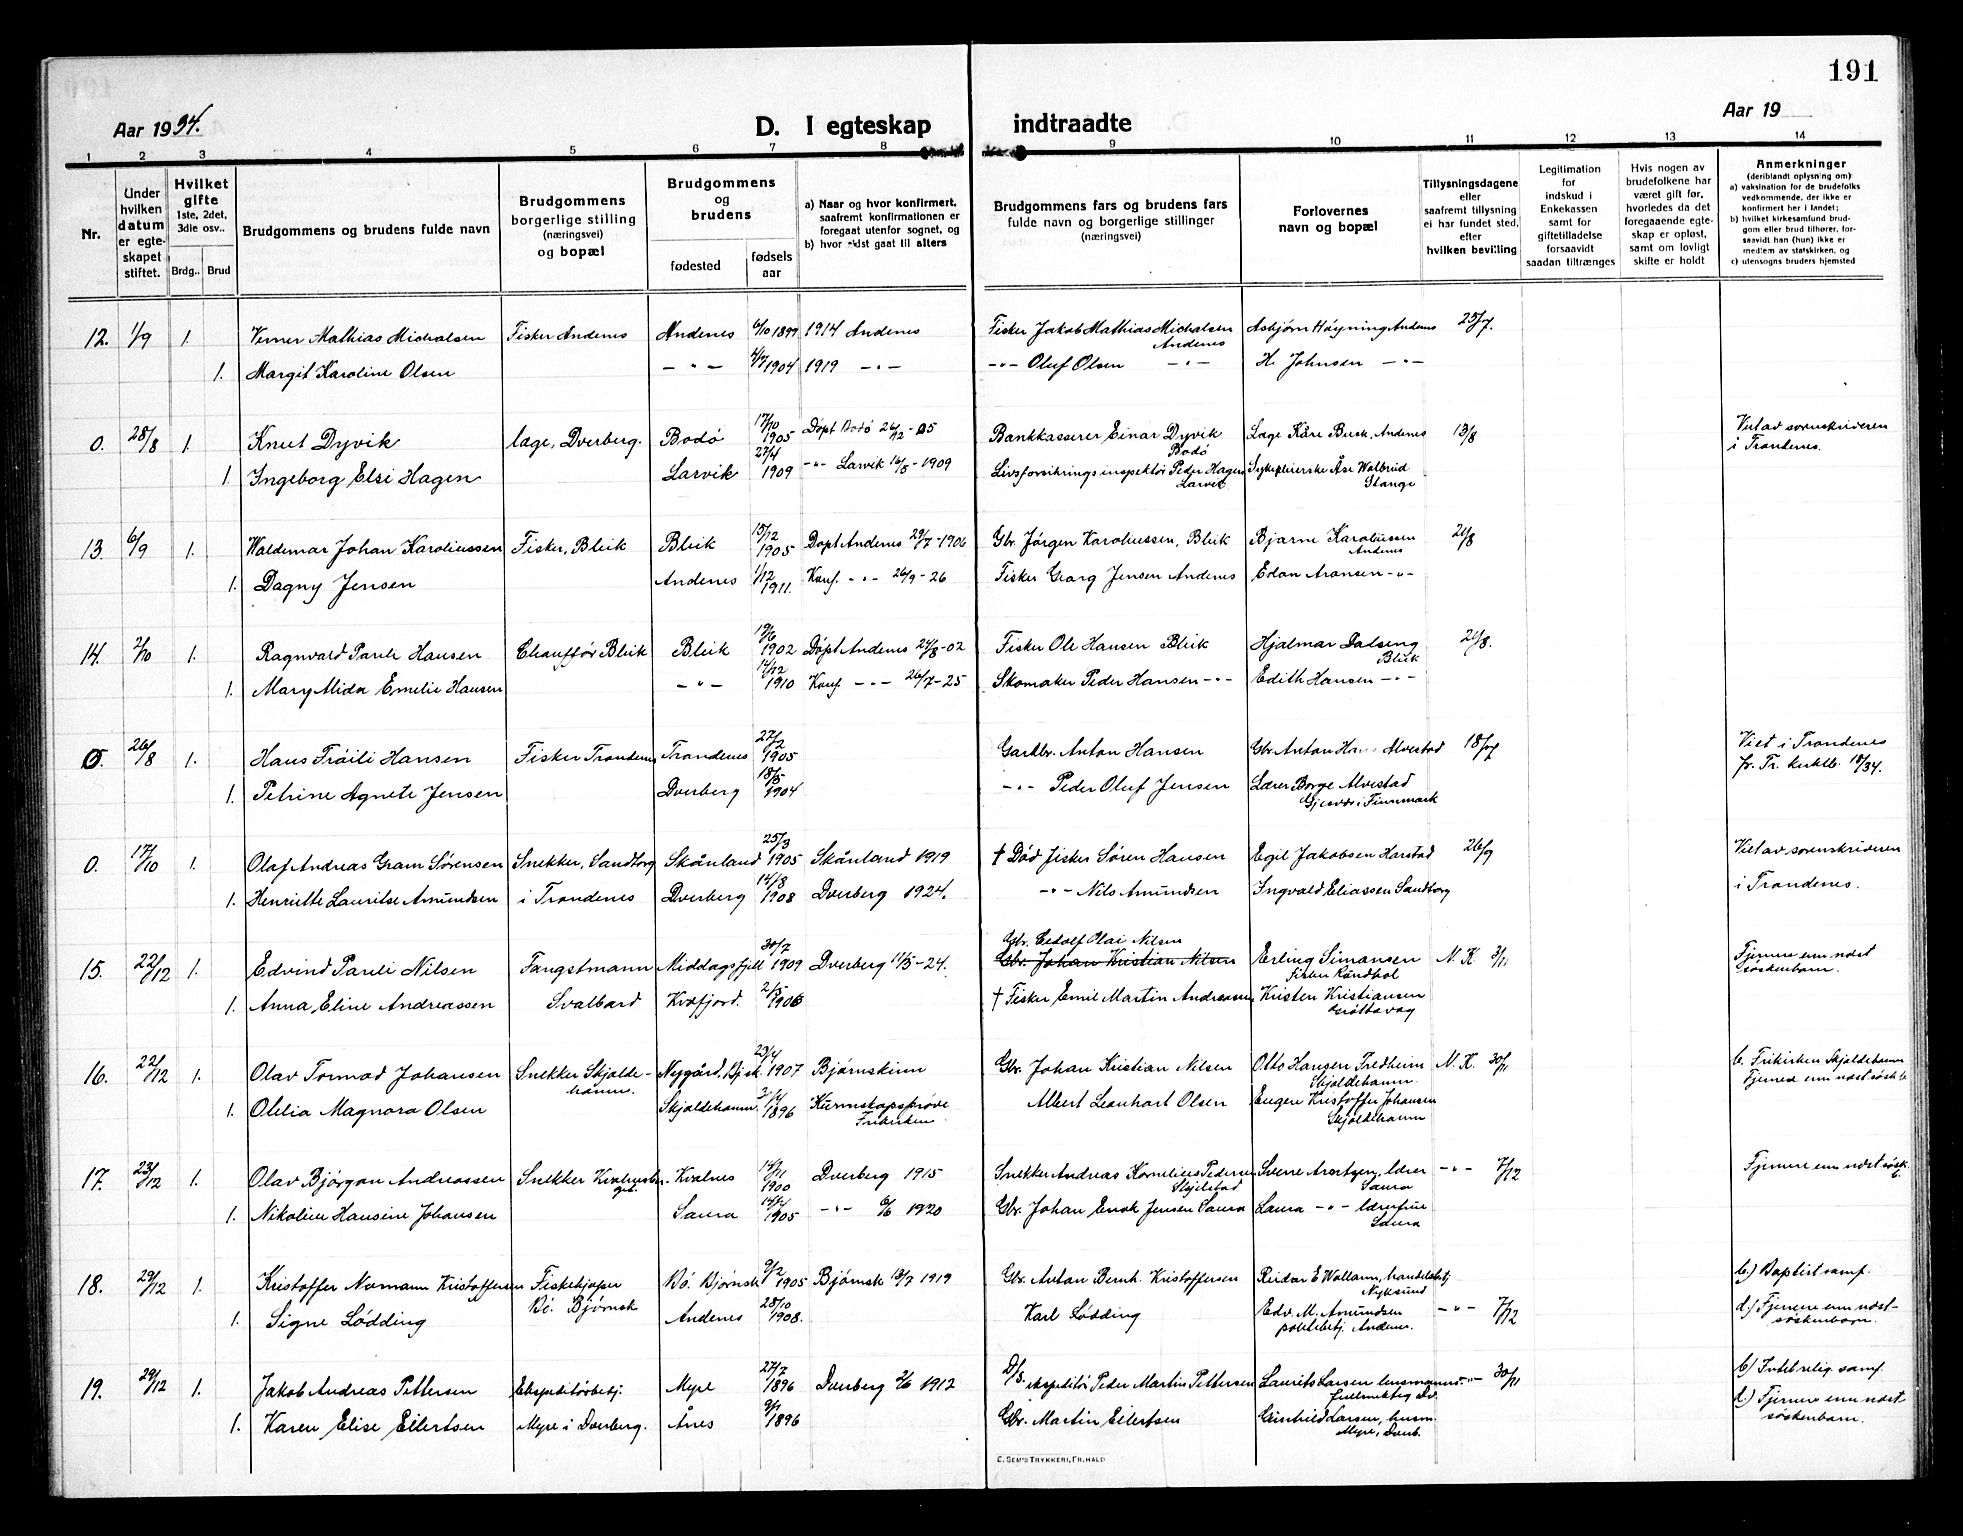 191
Aar 1934.
D. I egteskap indtraadte
Aar 19
1 2 3 4 5 6 7 8 9 10 11 12 13 14
Nr.
Under hvilken datum er egteskapet stiftet.
Hvilket gifte 1ste, 2det, 3die osv..
Brdg.. Brud
Brudgommens og brudens fulde navn
Brudgommens borgerlige stilling (næringsvei) og bopæl
Brudgommens og brudens
fødested
fødselsaar
a) Naar og hvor konfirmert, saafremt konfirmationen er foregaat utenfor sognet, og
b) hvor sidst gaat til alters
Brudgommens fars og brudens fars fulde navn og borgerlige stillinger (næringsvei)
Forlovernes navn og bopæl
Tillysningsdagene eller saafremt tillysning ei har fundet sted, efter hvilken bevilling
Legitimation for indskud i Enkekassen samt for giftetilladelse forsaavidt saadan tiltrænges
Hvis nogen av brudefolkene har været gift før, hvorledes da det foregaaende egteskap er opløst, samt om lovligt skifte er holdt
Anmerkninger (deriblandt oplysning om)
a) vaksination for de brudefolks vedkommende, der ikke er konfirmert her i landet;
b) hvilket kirkesamfund brudgom eller brud tilhører, forsaavidt han (hun) ikke er medlem av statskirken, og
c) utensogns bruders hjemsted
12. 1/9 1. Verner Mathias Michalsen Fisker Andenes Andenes 6/10 1899 1914 Andenes Fisker Jakob Mathias Michalsen Andenes Asbjørn Høyning Andenes 25/7.
1. Margit Karoline Olsen — " — 4/7 1904 1919 — " — — " — Oluf Olsen — " — H. Johnsen — " —
0. 28/8 1. Knut Dyvik læge, Dverberg. Bodø 17/10 1905 Døpt Bodø 26/12-05 Bankkasserer Einar Dyvik Bodø Læge Kåre Busk, Andenes 13/8 Viet av sorenskriveren i Trondenes.
1. Ingeborg Elsi Hagen Larvik 27/4 1909 — " — Larvik 16/5-1909 Livsforsikringsinspektør Peder Hagen Larvik Sykepleierske Åse Walbrud Stange
13. 6/9 1. Waldemar Johan Karoliussen Fisker, Bleik Bleik 15/12 1905 Døpt Andenes 29/7-1906 Gbr. Jørgen Karoliussen, Bleik Bjarne Karoliussen Andenes 21/8
1. Dagny Jensen Andenes 1/12 1911. Konf. — " — 26/9-26 Fisker Georg Jensen Andenes Edon Aronsen — " —
14. 2/10 1. Ragnvald Pareli Hansen Chauffør Bleik Bleik 19/6 1902 Døpt Andenes 24/8-02 Fisker Ole Hansen Bleik Hjalmar Dalseng Bleik 21/8.
1. Mary Alida Emelie Hansen — " — 14/12 1910 Konf. — " — 26/7-25 Skomaker Peder Hansen — " — Edith Hansen — " —
0. 26/8 1. Hans Frøili Hansen Fisker Trondenes Trondenes 27/2 1905 Gardbr. Anton Hansen Gbr. Anton Hans Alvestad 18/7 Viet i Trondenes fr. Tr. kirkeb. 18/34.
1. Petrine Agnete Jensen Dverberg 18/5 1904 — " — Peder Oluf Jensen Lærer Borge Alvestad Gjesvær i Finnmark
0. 17/10 1. Olaf Andreas Gram Sørensen Snekker, Sandtorg Skånland 25/3 1905 Skånland 1919 † Død fisker Søren Hansen Egil Jakobsen Harstad 26/9 Viet av sorenskriveren
1. Henriette Lauritse Amundsen i Trondenes Dverberg 14/8 1908 Dverberg 1924. — " — Nils Amundsen Ingvald Eliassen Sandtorg i Trondenes.
15. 22/12 1. Edvind Pareli Nilsen Fangstmann Middagsfjell 30/7 1909 Dverberg 11/5-24. Gbr. Edolf Olai Nilsen Gbr. Johan Kristian Nilsen Erling Simonsen N. K. 3/11 Fjernere enn næst søskenbarn.
1. Anna Eline Andreassen Svalbard Kvæfjord. 2/5 1906 † Fisker Emil Martin Andreassen Kristen Kristiansen
16. 22/12 1. Olav Tormod Johansen Snekker Skjoldehamn. Nygård. Bj.sk. 23/4 1907 Bjørnskinn Gbr. Johan Kristian Nilsen Otto Hansen Fredheim Skjoldehamn. N. K. 30/11 b. Frikirken Skjoldehamn Fjernere enn næst søsk.b
1. Otelia Magnora Olsen Skjoldehamn. 2/4 1896 Kunnskapsprøve Frikirken Albert Leonhart Olsen Eugen Kristoffer Johansen Skjoldehamn
17. 23/12 1. Olav Bjørgan Andreassen Snekker Kvalnes Kvalnes 14/11 1900 Dverberg 1915 Snekker Andreas Kornelius Pedersen Skjelstad Sverre lærer Saura — " — 7/12 Fjernere enn næst søsk.b.
1. Nikoline Hansine Johansen Saura 14/4 1905 — " — 6/6 1920 Gbr. Johan Enok Jensen Saura Laura — " — lærerfrue Saura
18. 29/12 1. Kristoffer Normann Kristoffersen Fiskekjøper Bø. Bjørnsk. 9/2 1905 Bjørnsk 13/7 1919 Gbr. Anton Bernh. Kristoffersen Reidar E Wollann, handelsbetj. Nyksund b.) Baptist samf.
1. Signe Lødding Bø. Bjørnsk Andenes 28/10 1908. Karl Lødding Edv. M. Amundsen politibetj. Andenes. — " — 7/12 d.) Fjernere enn næst-søskenbarn.
19. 29/12 1. Jakob Andreas Pettersen Ekspeditørbetj. Myre 27/7 1896 Dverberg 2/6 1912 D/S. ekspeditør Peder Martin Pettersen Laurits Larsen lensmanns-fullmektig Dv. — " — 30/11 b) Intet relig. samf.
1. Karen Elise Eilertsen Myre i Dverberg. Ånes 9/1 1896 Gbr. Martin Eilertsen Gunhild Larsen, husm. Myre, Dverb. d) Fjernere enn næst søskenbarn.
E. SEM'S TRYKKERI, FR.HALD